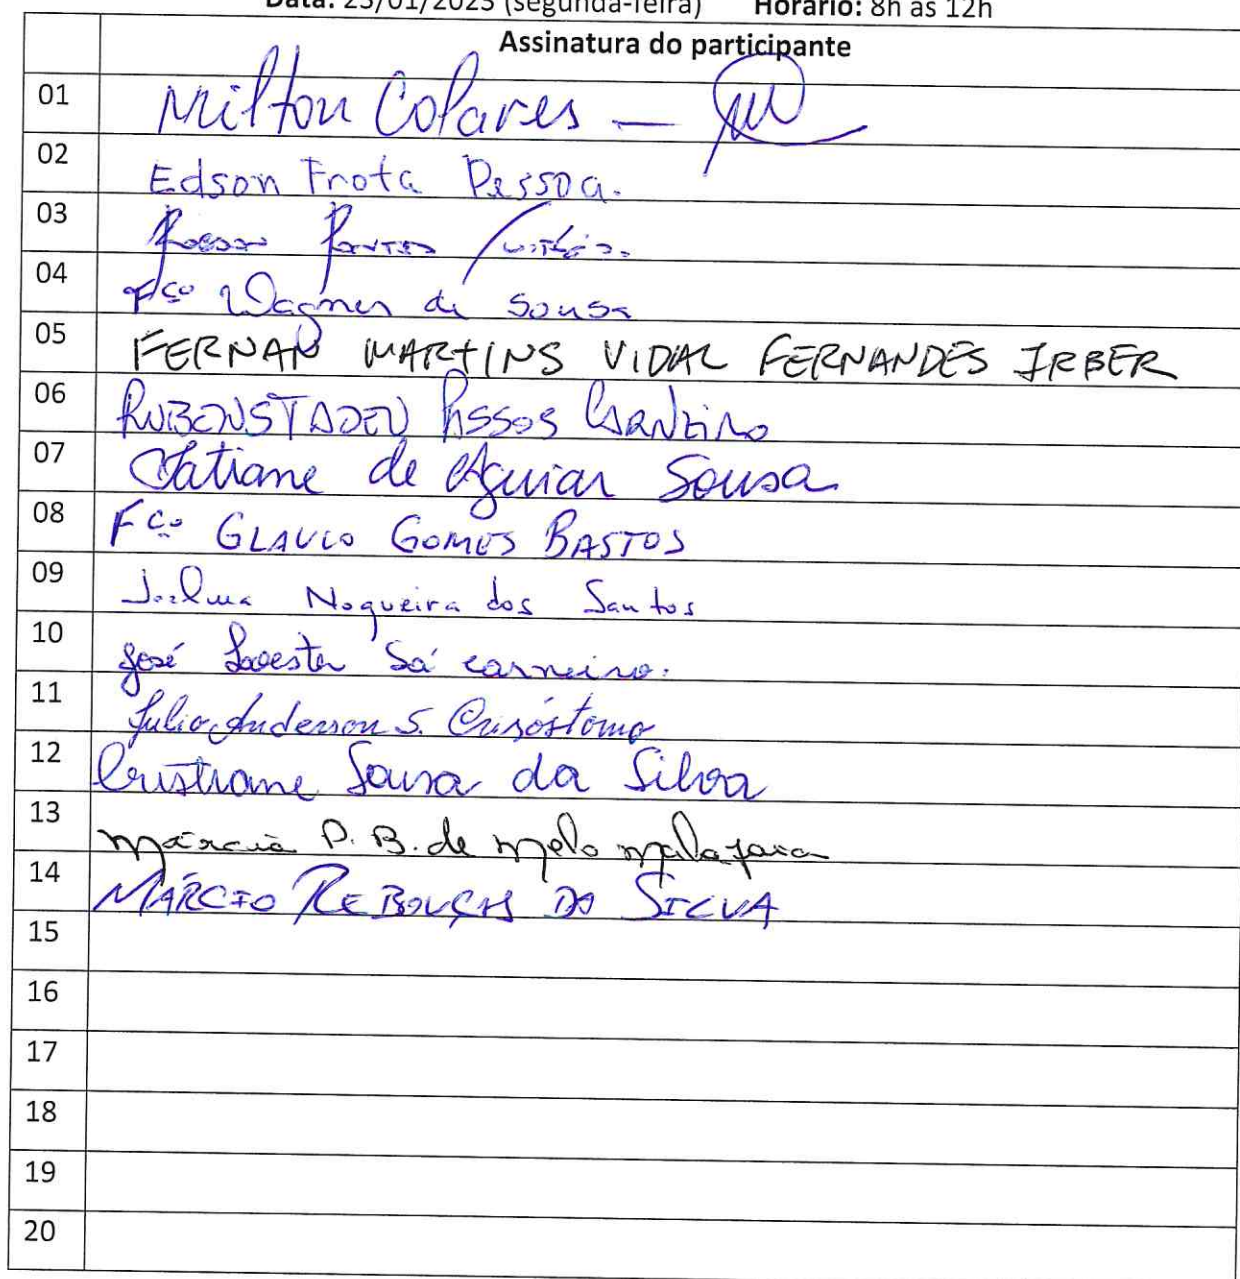 Data: 23/01/2023 (segunda-feira) Horário: 8h às 12h
Assinatura do participante
01 Milton Colares —
02 Edson Frota Pessoa.
03
04 Fco Wagner de Sousa
05 FERNAN MARTINS VIDAL FERNANDES IRBER
06 RUBENSTADEU Assos CARNEIRO
07 Tatiane de Aguiar Sousa
08 Fco GLAUCO GOMES BASTOS
09 Nogueira dos Santos
10 José Sá carneiro.
11 Julio Anderson S. Crisóstomo
12 Cristiane Sousa da Silva
13 Márcia P. B. de Melo Malafaia
14 MÁRCIO REBOUÇAS DA SILVA
15
16
17
18
19
20